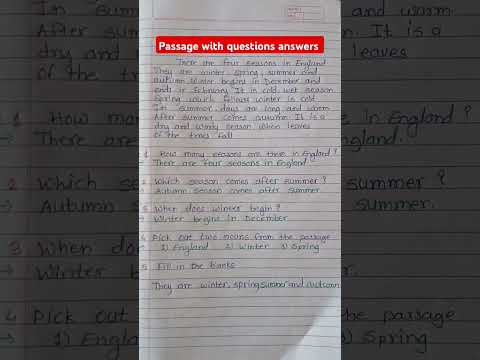 Passage with questions answers
There are four seasons in England
They are winter, spring, summer and
autumn. Winter begins in December and
ends in february. It is cold wet season
Spring which follows winter is cold
In summer, days are long and warm
After summer comes autumn. It is a
dry and windy season when leaves
of the times fall
1 How many seasons are there in England?
There are four seasons in England.
2 Which season comes after summer?
→ Autumn season comes after summer.
3 When does winter begin?
→ Winter begins in December
4 Pick out two nouns from the passage
→ 1) England 2) Winter 3) Spring
5 Fill in the banks
They are winter, spring summer and autumn